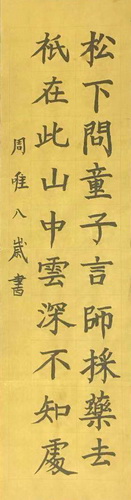 松下問童子言師採藥去
祇在此山中雲深不知處
周唯八歲書